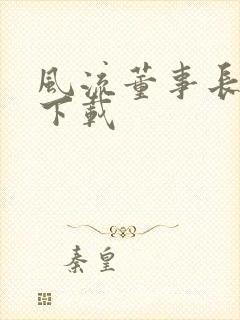 風流董事長
下載
秦皇